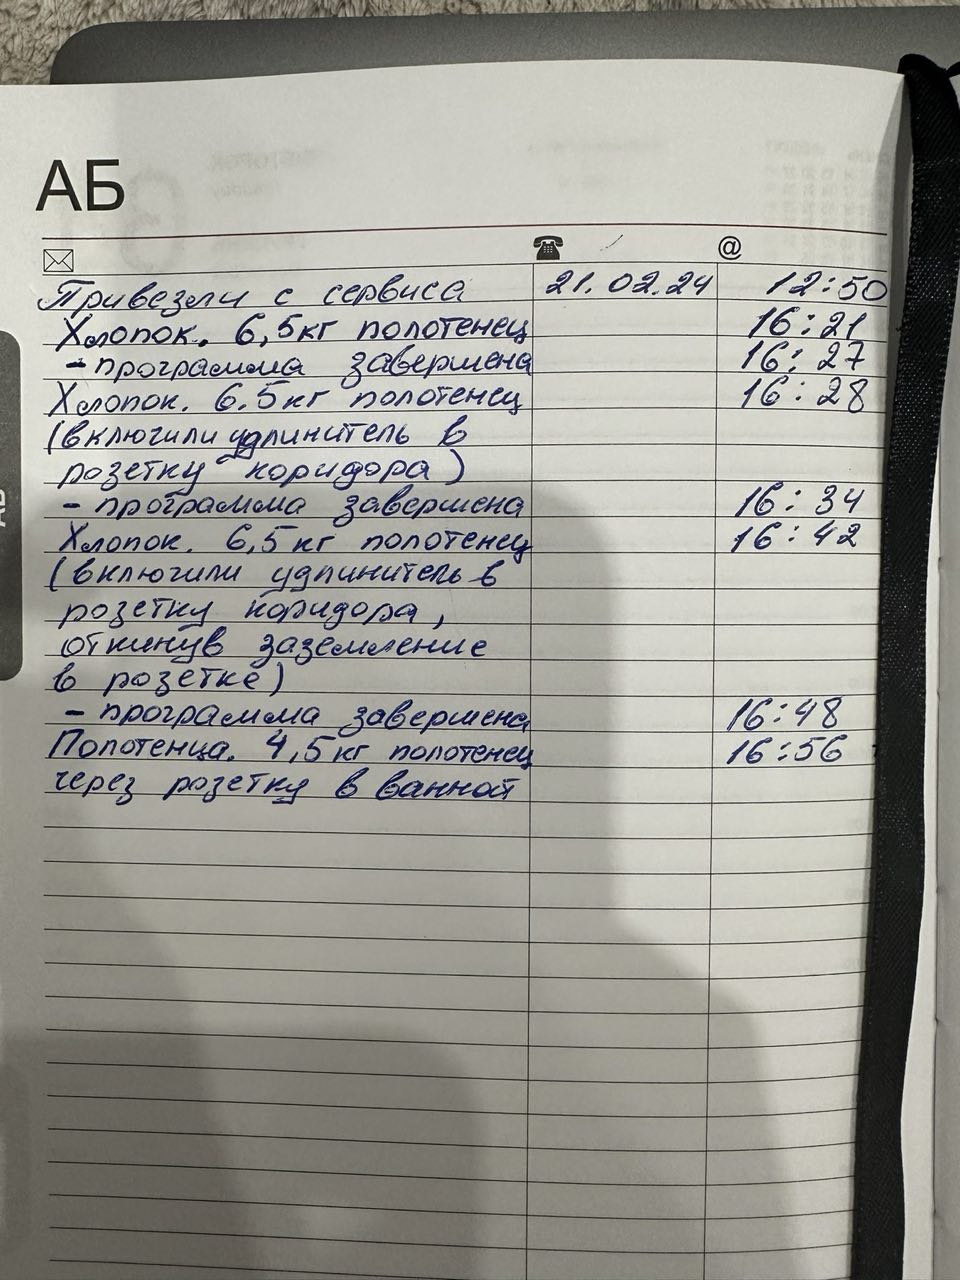 АБ
@
Привезли с сервиса 21.02.24 12:50
Хлопок. 6,5кг полотенец 16:21
- программа завершена 16:27
Хлопок. 6.5кг полотенец 16:28
(включили удлинитель в
розетку коридора)
- программа завершена 16:34
Хлопок. 6,5кг полотенец 16:42
(включили удлинитель в
розетку коридора,
откинув заземление
в розетке)
- программа завершена 16:48
Полотенца. 4,5кг полотенец 16:56
через розетку в ванной